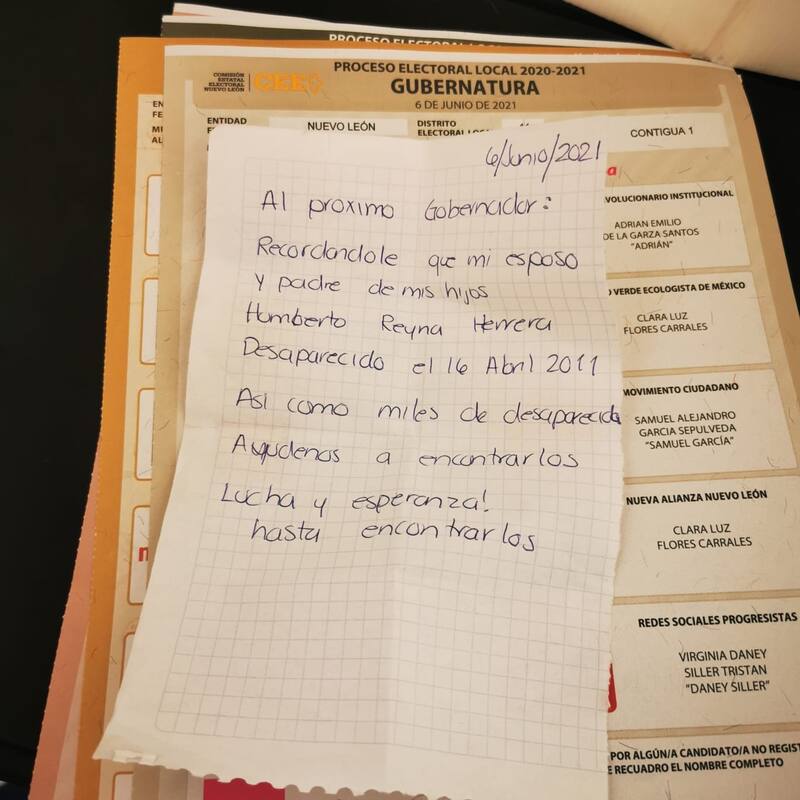 PROCESO ELECTORAL LOCAL
COMISIÓN
ESTATAL
ELECTORAL
NUEVO LEÓN
CEE
PROCESO ELECTORAL LOCAL 2020-2021
GUBERNATURA
6 DE JUNIO DE 2021
ENTIDAD
NUEVO LEÓN
DISTRITO
ELECTORAL
CONTIGUA 1
6/Junio/2021
Al proximo Gobernador:
Recordandole que mi esposo
y padre de mis hijos
Humberto Reyna Herrera
Desaparecido el 16 Abril 2011
Asi como miles de desaparecido
Ayudenos a encontrarlos
Lucha y esperanza!
hasta encontrarlos
VOLUCIONARIO INSTITUCIONAL
ADRIAN EMILIO
DE LA GARZA SANTOS
"ADRIÁN"
VERDE ECOLOGISTA DE MÉXICO
CLARA LUZ
FLORES CARRALES
MOVIMIENTO CIUDADANO
SAMUEL ALEJANDRO
GARCIA SEPULVEDA
"SAMUEL GARCÍA"
NUEVA ALIANZA NUEVO LEÓN
CLARA LUZ
FLORES CARRALES
REDES SOCIALES PROGRESISTAS
VIRGINIA DANEY
SILLER TRISTAN
"DANEY SILLER"
POR ALGÚN/A CANDIDATO/A NO REGIST
RECUADRO EL NOMBRE COMPLETO